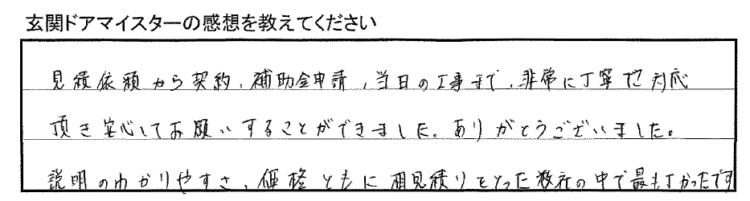 玄関ドアマイスターの感想を教えてください
見積依頼から契約、補助金申請、当日の工事まで、非常に丁寧に対応
頂き安心してお願いすることができました。ありがとうございました。
説明のわかりやすさ、価格ともに相見積りをとった数社の中で最もよかったです